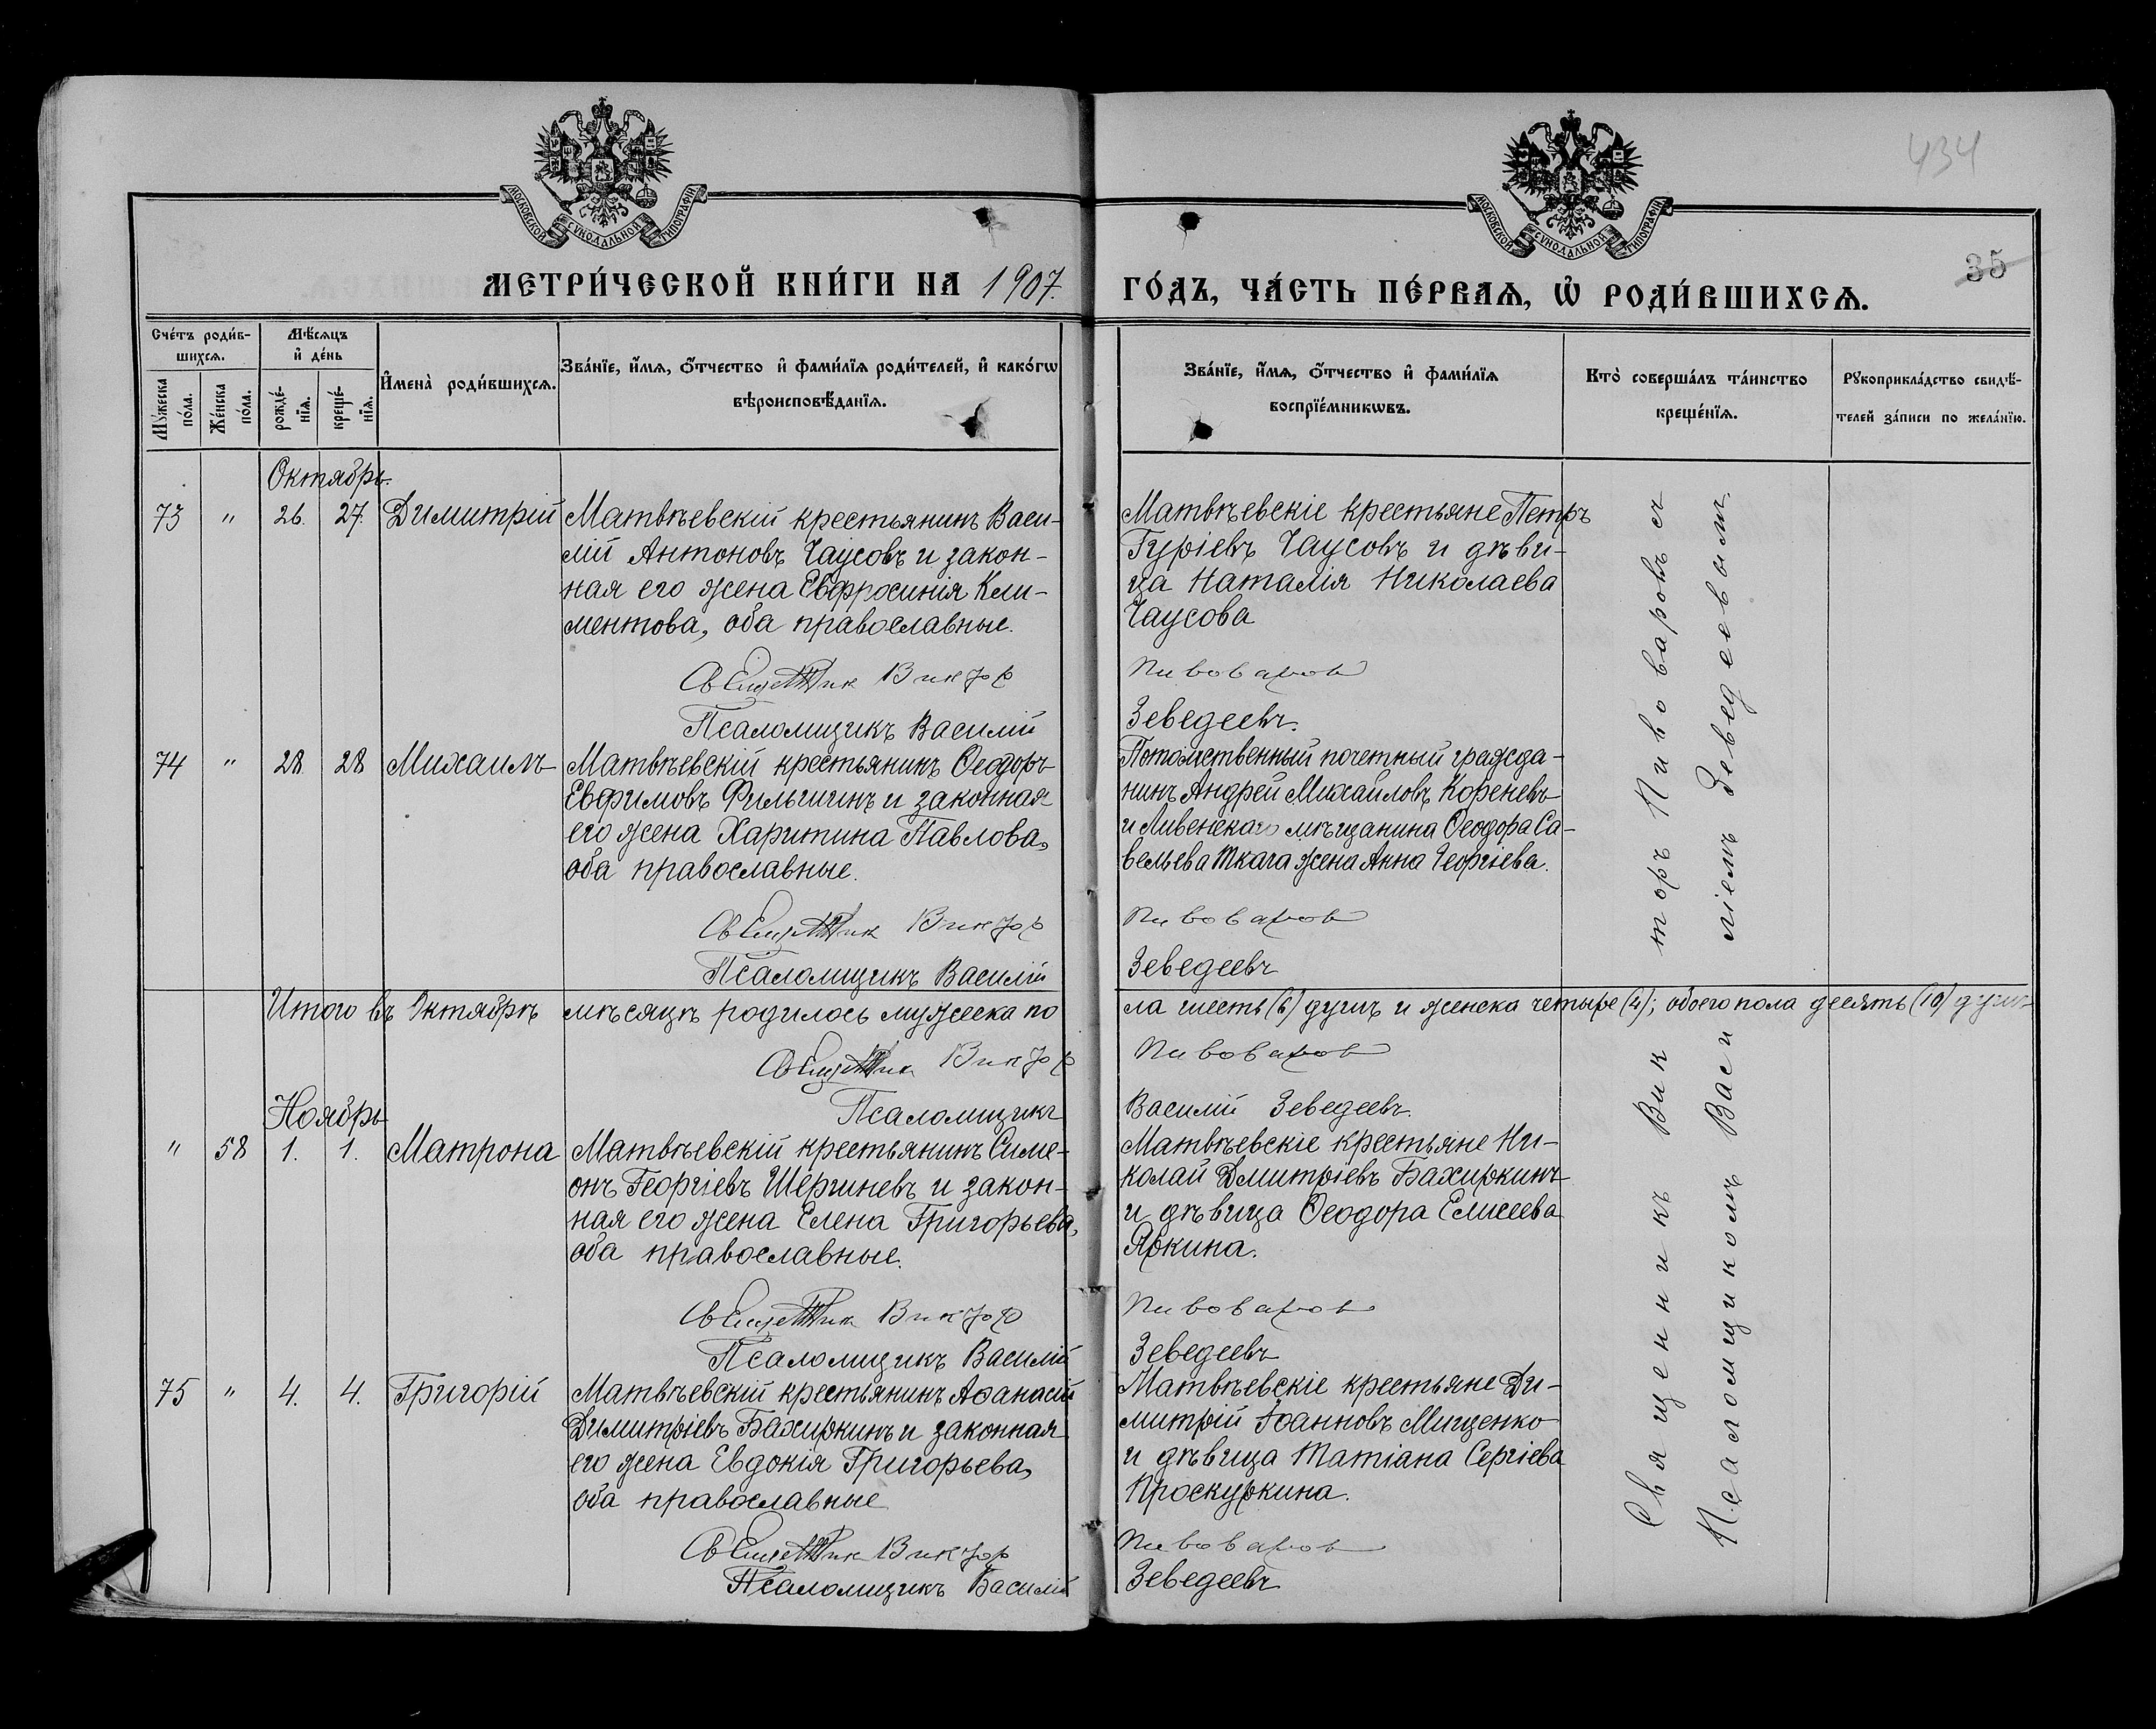 434
35
МОСКОВСКОЙ СѴНОДАЛЬНОЙ ТИПОГРАФІИ
МОСКОВСКОЙ СѴНОДАЛЬНОЙ ТИПОГРАФІИ
МЕТРИ́ЧЕСКОЙ КНИ́ГИ НА 1907.
ГО́ДЪ, ЧА́СТЬ ПЕ́РВАѦ, Ѡ҆ РОДИ́ВШИХСѦ.
Сче́тъ роди́в-
шихсѧ.
Мꙋ́жеска по́ла.
Же́нска по́ла.
Мѣ́сѧцъ
и҆ де́нь
рожде́-
нїѧ.
креще́-
нїѧ.
И҆мена̀ роди́вшихсѧ.
Зва́нїе, и҆́мѧ, ѻ҆́тчество и҆ фами́лїѧ роди́телей, и҆ како́гѡ
вѣроисповѣ́данїѧ.
Зва́нїе, и҆́мѧ, ѻ҆́тчество и҆ фами́лїѧ
воспрїе́мникѡвъ.
Кто̀ соверша́лъ та́инство
креще́нїѧ.
Рꙋкоприкла́дство свидѣ́-
телей за́писи по жела́нїю.
Октябрь.
73 " 26. 27. Димитрій
Матвѣевскій крестьянинъ Васи-
лій Антоновъ Чаусовъ и закон-
ная его жена Евфросинія Кли-
ментова, оба православные.
Священник Виктор
Псаломщикъ Василій
Матвѣевскіе крестьяне Петръ
Гуріевъ Чаусовъ и дѣви-
ца Наталія Николаева
Чаусова
Пивоваров
Зеведеевъ.
74 " 28 28 Михаилъ
Матвѣевскій крестьянинъ Ѳеодоръ
Евфимовъ Фильшинъ и законная
его жена Харитина Павлова,
оба православные.
Священник Виктор
Псаломщикъ Василій
Потомственный почетный гражда-
нинъ Андрей Михайловъ Кореневъ
и Ливенскаго мѣщанина Ѳеодора Са-
вельева Ткача жена Анна Георгіева.
Пивоваров
Зеведеевъ
Итого въ Октябрѣ мѣсяцѣ родилось мужеска по
ла шесть (6) душъ и женска четыре (4); обоего пола десять (10) душъ
Священник Виктор
Пивоваров
Псаломщикъ
Василій Зеведеевъ.
Ноябрь
" 58 1. 1. Матрона
Матвѣевскій крестьянинъ Симе-
онъ Георгіевъ Шергиневъ и закон-
ная его жена Елена Григорьева,
оба православные.
Священник Виктор
Псаломщикъ Василій
Матвѣевскіе крестьяне Ни-
колай Дмитріевъ Бахиркинъ
и дѣвица Ѳеодора Елисеева
Яркина.
Пивоваров
Зеведеевъ
75 " 4. 4. Григорій
Матвѣевскій крестьянинъ Аѳанасій
Димитріевъ Бахиркинъ и законная
его жена Евдокія Григорьева,
оба православные
Священник Виктор
Псаломщикъ Василій
Матвѣевскіе крестьяне Ди-
митрій Іоанновъ Мищенко
и дѣвица Татіана Сергіева
Проскуркина.
Пивоваров
Зеведеевъ
Священникъ Викторъ Пивоваровъ съ
Псаломщикомъ Василіемъ Зеведеевымъ.